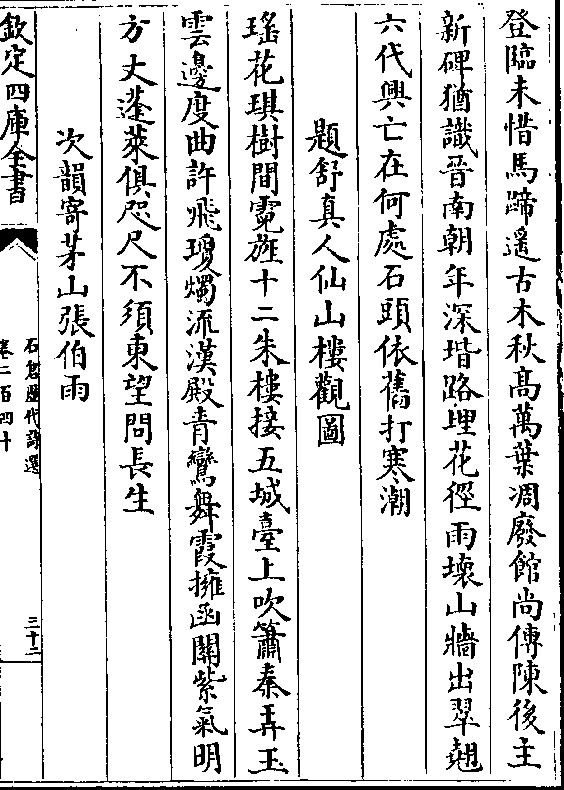 登臨未惜馬蹄遙古木秋高萬葉凋廢館尚傳陳後主
新碑猶識晉南朝年深堦路埋花徑雨壞山牆出翠翹
六代興亡在何處石頭依舊打寒潮
題舒真人仙山樓觀圖
瑤花琪樹間霓旌十二朱樓接五城臺上吹簫秦弄玉
雲邊度曲許飛瓊燭流漢殿青鸞舞霞擁函關紫氣明
方丈蓬萊俱咫尺不須東望問長生
次韻寄茅山張伯雨
欽定四庫全書
石倉歷代詩選
卷二百四十
三十二